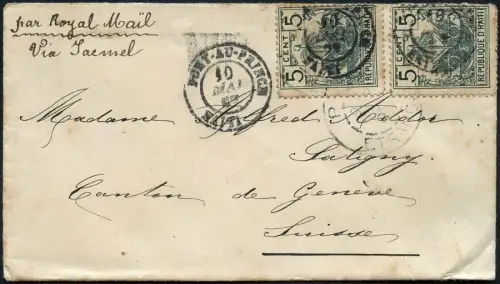 par Royal Mail
Via Jacmel
5 CENT 5
REPUBLIQUE D'HAITI
5 CENT 5
REPUBLIQUE D'HAITI
PORT-AU-PRINCE
10
MAI
HAITI
Madame Alfred
Satigny
Canton de Genève
Suisse